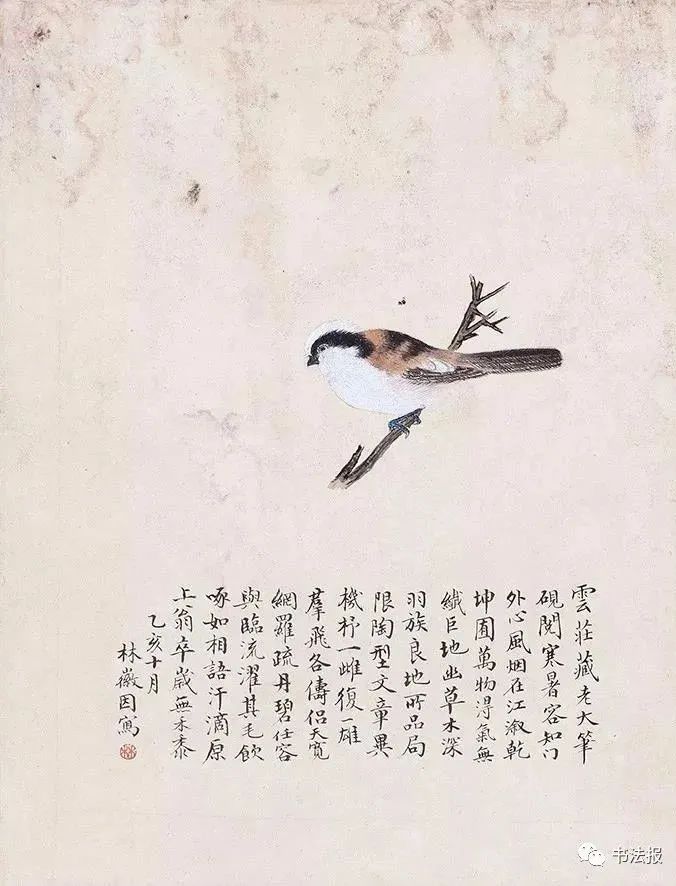 雲莊藏老大筆
硯閱寒暑容知门
外心風烟在江溆乾
坤囿萬物淂氣無
纖巨地幽草木深
羽族良地所品局
限陶型文章異
機杼一雌復一雄
羣飛各儔侣天寬
網羅疏丹碧任容
與臨流濯其毛飲
啄如相語汗滴原
上翁卒歲無禾黍
乙亥十月
林徽因寫
书法报